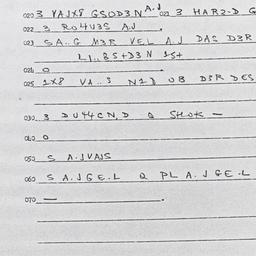 020 3 VAJX8 GSOD3N A.J 021 3 HAR2-D G
022 3 RO4U3S AJ
023 SA..G M3R VEL AJ DAS D3R
L1..8S+D3N 1S+
024 0
025 1X8 UA..3 N21 OB DSR DES
030 3 DU44CN,D Q SHOK —
040 0
050 S A.JVAJS
060 S A.JGE.L Q PL A.JGE.L
070 —